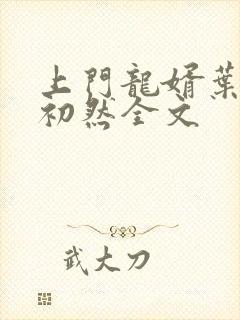 上門龍婿葉
初然全文
武大刀